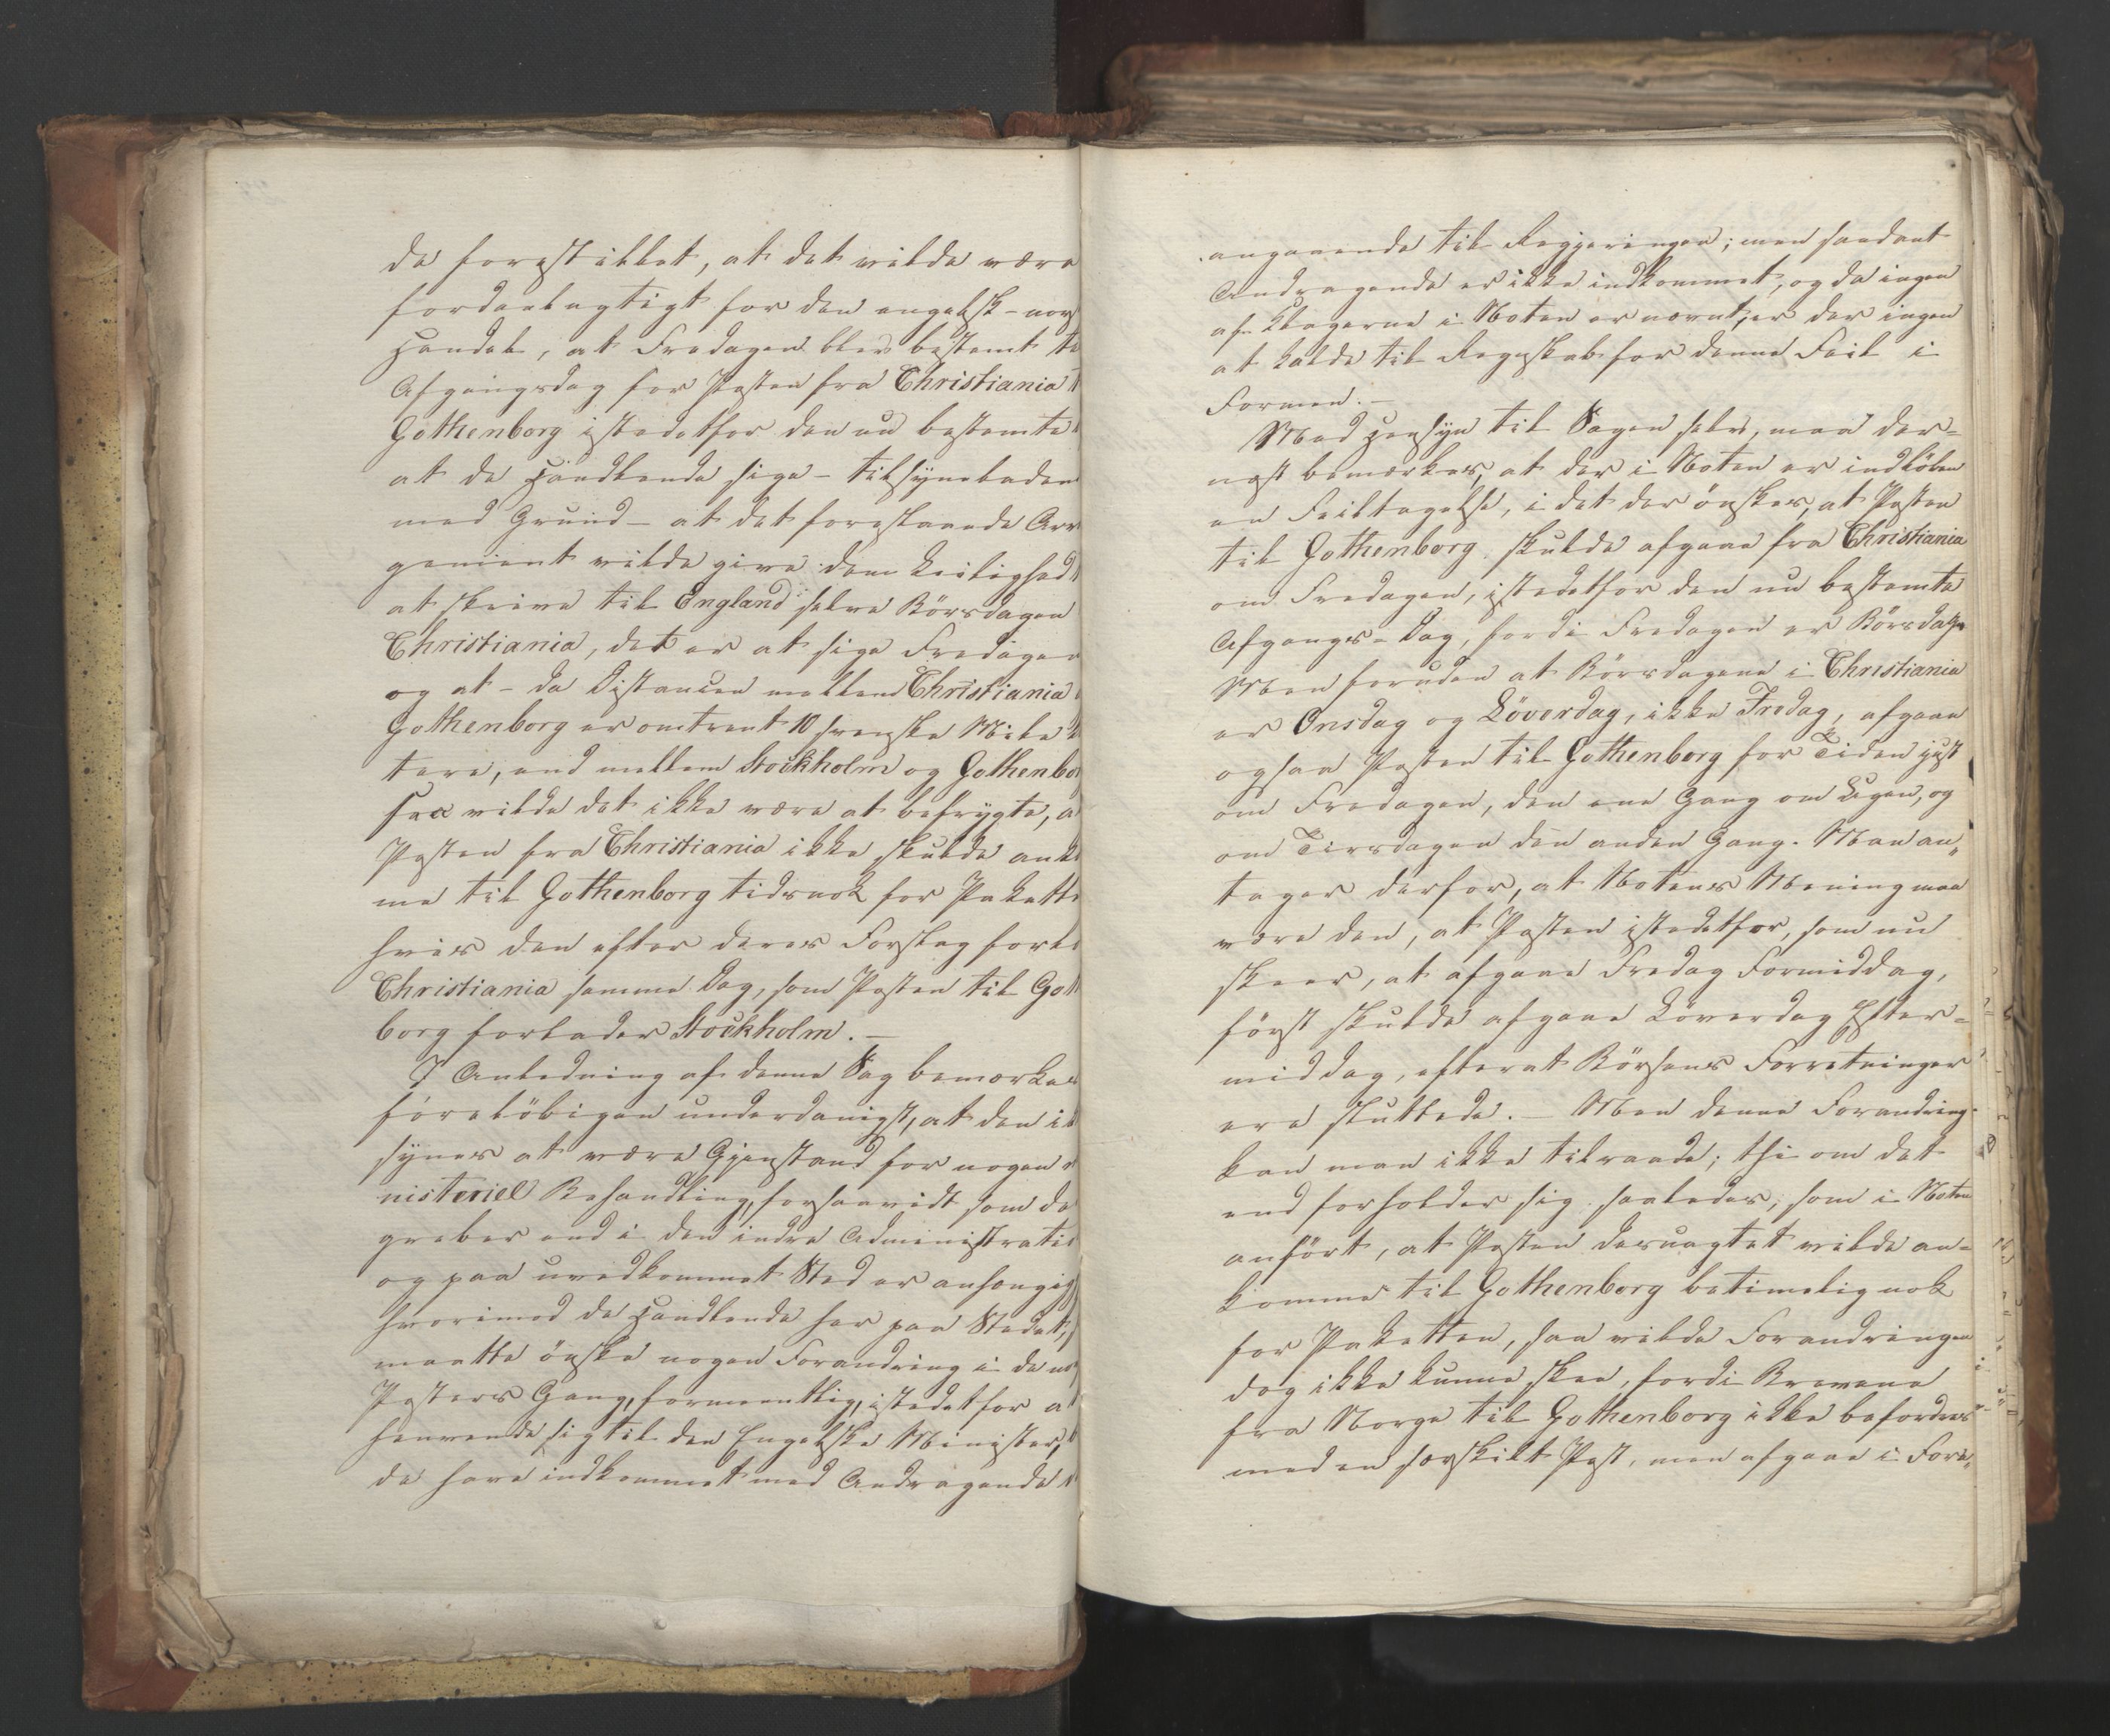 de forestillet, at det vilde være
fordeelagtigt for den engelsk-nors
Handel, at Fredagen blev bestemt ti
Afgangsdag for Posten fra Christiania t
Gothenborg istedetfor den nu bestemte
at de Handlende sige - tilsyneladen
med Grund - at det foreslaaede Arr
gement vilde give dem Leilighed
at skrive til England selve Börsdagen
Christiania, det er at sige Fredagen
og at - da Distancen mellem Christiania
Gothenborg er omtrent 10 svenske Mile
tere, end mellem Stockholm og Gothenbor
saa vilde det ikke være at befrygte, a
Posten fra Christiania ikke skulde anko
me til Gothenborg tidsnok for Pakette
hvis den efter deres Forslag forlo
Christiania samme Dag, som Posten til Got
borg forlader Stockholm. -
I Anledning af denne Sag bemærkes
foreløbigen underdanigst, at den ik
synes at være Gjenstand for nogen
nisteriel Behandling, forsaavidt som de
griber ind i den indre Administratio
og paa uvedkommet Sted er anhængig
hvorimod de Handlende her paa Stedet,
maatte önske nogen Forandring i de no
Posters Gang, formeentlig, istedetfor a
henvende sig til den Engelske Minister,
de have indkommet med Andragende
angaaende til Regjeringen; men saadant
Andragende er ikke indkommet, og da ingen
af Klagerne i Noten er nævnt, er der ingen
at kalde til Regnskab for denne Feil i
Formen. -
Med Hensyn til Sagen selv, maa der=
næst bemærkes, at der i Noten er indlöben
en Feiltagelse, i det der önskes, at Posten
til Gothenborg skulde afgaae fra Christiania
om Fredagen, istedetfor den nu bestemte
Afgangs-Dag, fordi Fredagen er Börsdag.
Men foruden at Börsdagene i Christiania
er Onsdag og Löverdag, ikke Fredag, afgaaer
ogsaa Posten til Gothenborg for Tiden just
om Fredagen, den ene Gang om Ugen, og
om Tirsdagen den anden Gang. Man an„
tager derfor, at Notens Mening maa
være den, at Posten istedetfor, som nu
skeer, at afgaae Fredag Formiddag,
först skulde afgaae Löverdag Efter=
middag, efterat Börsens Forretninger
ere sluttede. - Men denne Forandring
kan man ikke tilraade; thi om det
end forholder sig saaledes, som i Noten
anfört, at Posten desuagtet vilde an=
komme til Gothenborg betimelig nok
for Paketten, saa vilde Forandringen
dog ikke kunne skee, fordi Brevene
fra Norge til Gothenborg ikke befordres
med en særskilt Post, men afgaae i Fore„